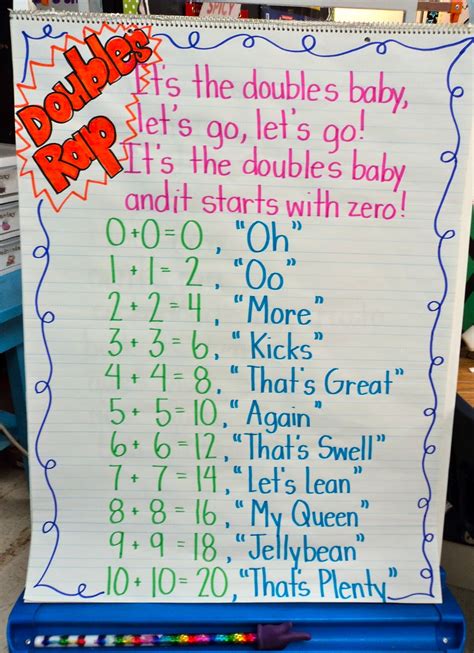 SPICY
Doubles
Rap
It's the doubles baby,
let's go, let's go!
It's the doubles baby
and it starts with zero!
0+0=0, "Oh"
1+1=2, "Oo"
2+2=4, "More"
3+3=6, "Kicks"
4+4=8, "That's Great"
5+5=10, "Again"
6+6=12, "That's Swell"
7+7=14, "Let's Lean"
8+8=16, "My Queen"
9+9=18, "Jellybean"
10+10=20, "That's Plenty"